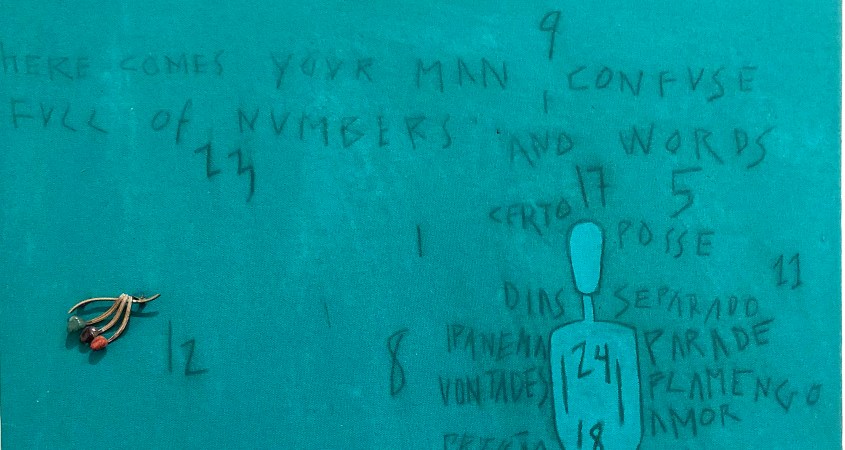 9
HERE COMES YOUR MAN, CONFUSE
FULL OF NUMBERS AND WORDS
23
17 5
CERTO
1 POSSE
11
DIAS SEPARADO
12 8 IPANEMA 24 PARADE
VONTADES FLAMENGO
AMOR
18